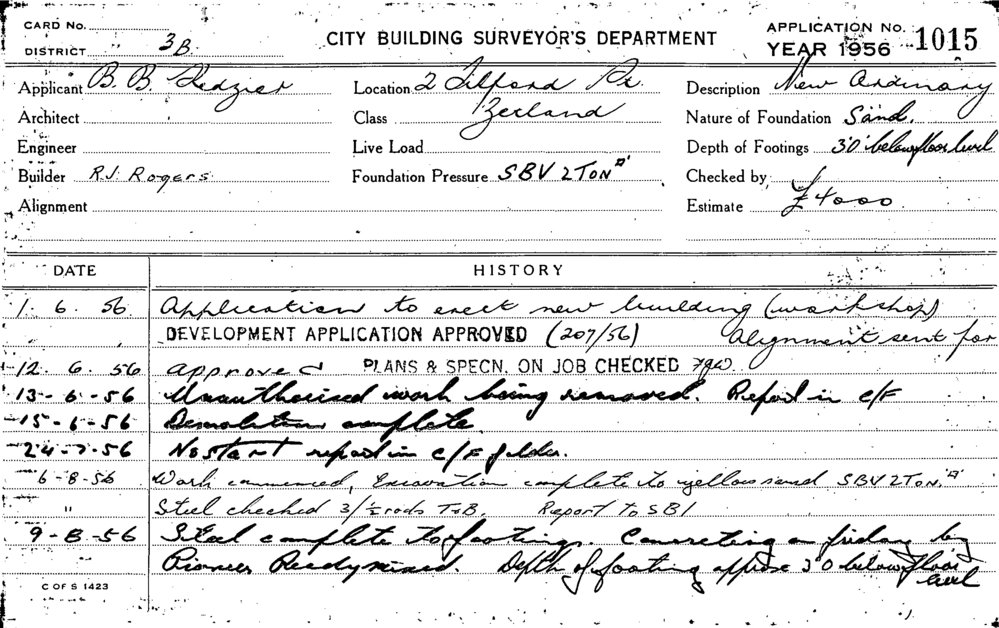 CARD No.
DISTRICT 3B
CITY BUILDING SURVEYOR'S DEPARTMENT
APPLICATION No. 1015
YEAR 1956
Applicant B. B.
Location 2 Tilford St.
Description New Ordinary
Architect
Class Zetland
Nature of Foundation Sand.
Engineer
Live Load
Depth of Footings 3'0" below floor level
Builder R.J. Rogers
Foundation Pressure SBV 2 TON
Checked by
Alignment
Estimate £4000
DATE HISTORY
1. 6. 56 Application to erect new building (workshop)
DEVELOPMENT APPLICATION APPROVED (207/56) Alignment sent for
12. 6. 56 approved PLANS & SPECN. ON JOB CHECKED
13-6-56 Unauthorised work being removed. Report in c/F
15-6-56 Demolition complete.
24-7-56 No start report in c/F folder.
6-8-56 Work commenced, Excavation complete to yellow sand SBV 2 TON.
" Steel checked 3/½ rods T&B. Report to SBI
9-8-56 Steel complete to footings. Concreting on friday by
Pioneer Readymixed. Depth of footing approx 3'0 below floor
level
C OF S 1423